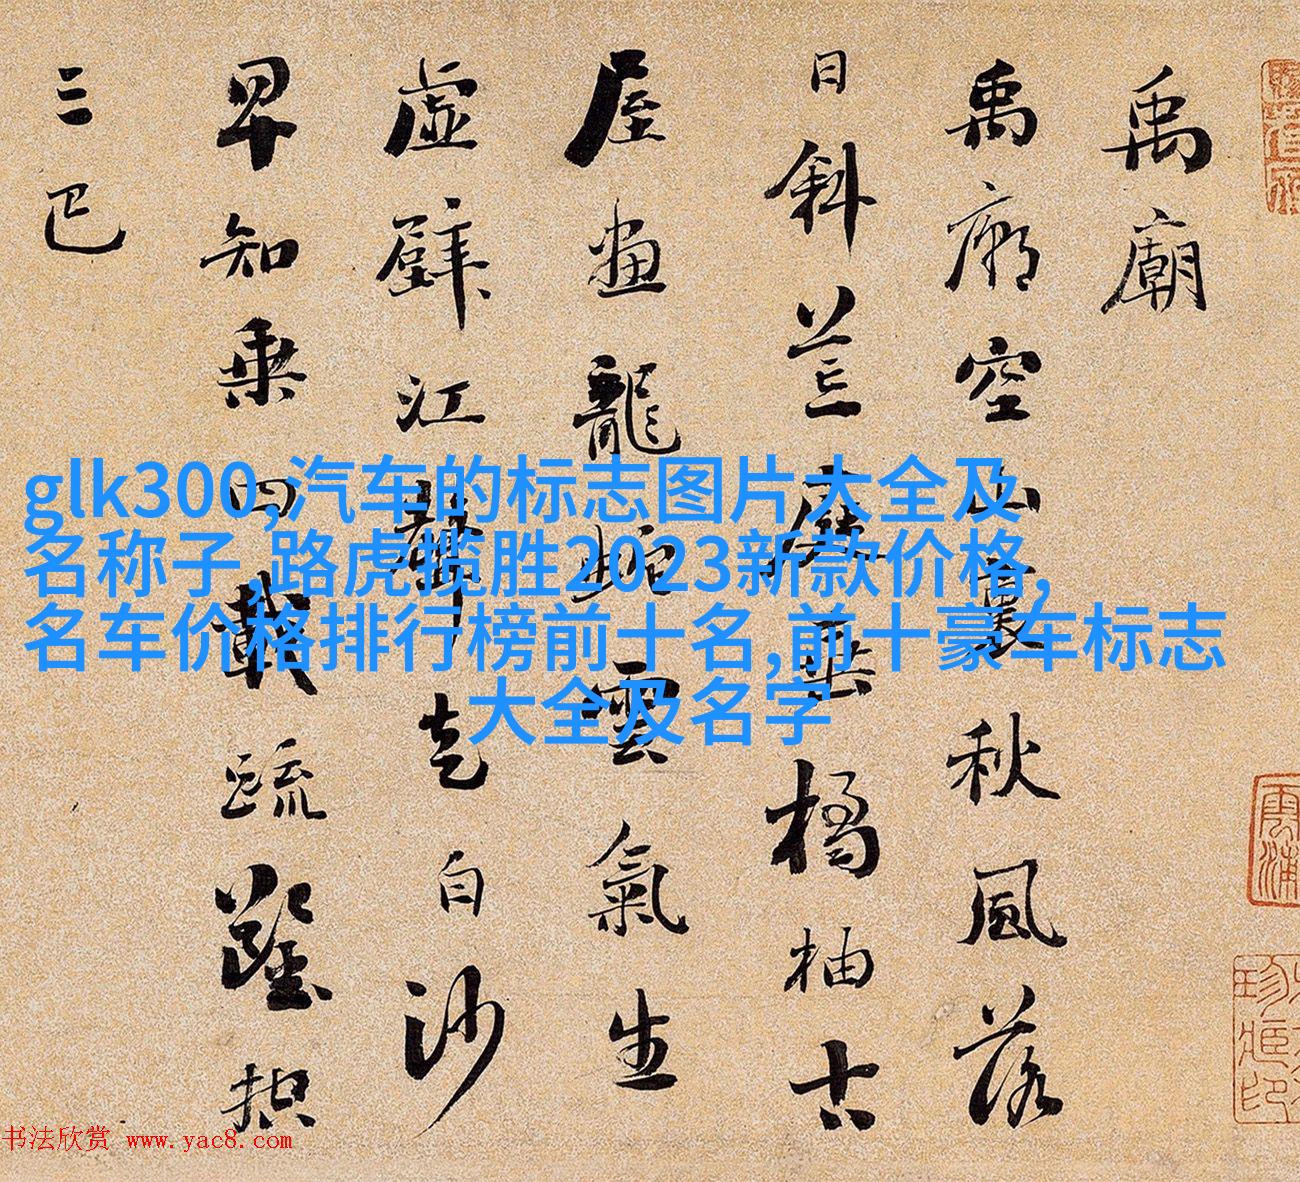 禹廟
禹廟空山裏秋風落
日斜荒庭垂橘柚古
屋畫龍蛇雲氣生
虛壁江聲走白沙
早知乘四載疏鑿控
三巴
glk300,汽车的标志图片大全及
名称子,路虎揽胜2023新款价格,
名车价格排行榜前十名,前十豪车标志
大全及名字
书法欣赏 www.yac8.com